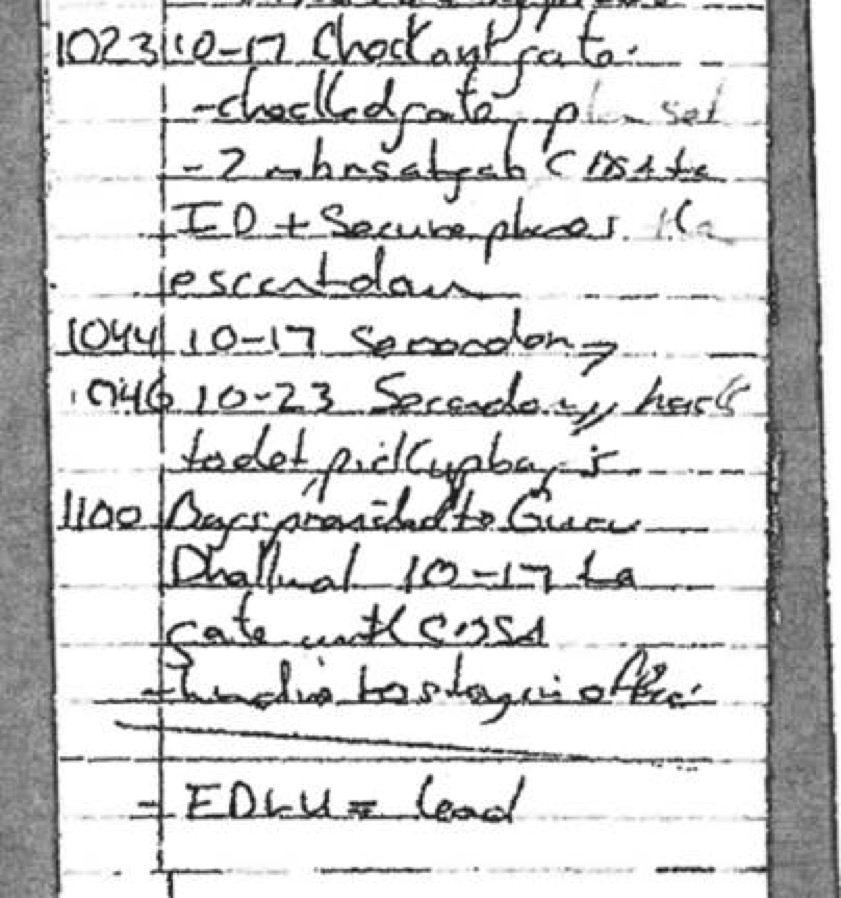 1023 10-17 Check out gate.
- checked gate, plan set
- 2 mbrs at gate CBSA to
ID + Secure phones. Ka
escort down
1044 10-17 Secondary
1046 10-23 Secondary, back
to det, pick up bags
1100 Bags provided to Guru
Dhaliwal 10-17 to
gate with CBSA
- to stay in office.
- EDLU = lead